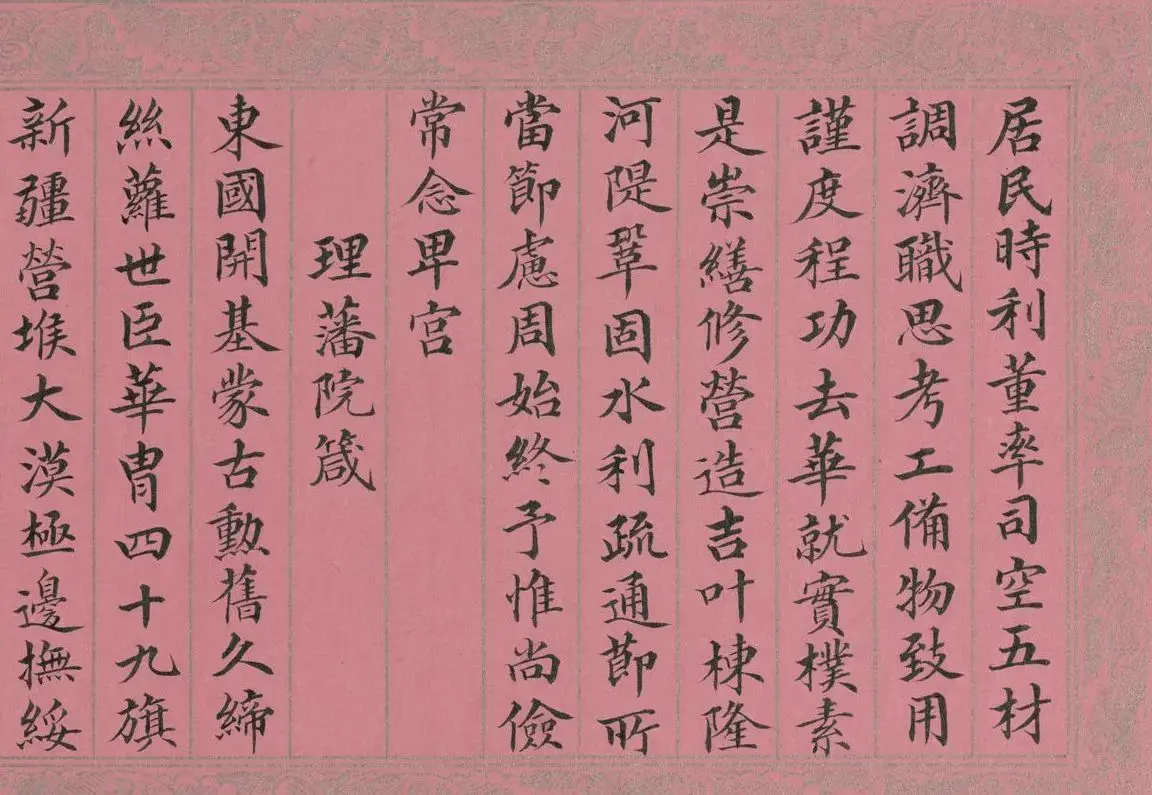 居民時利董率司空五材
調濟職思考工備物致用
謹度程功去華就實樸素
是崇繕修營造吉叶棟隆
河隄鞏固水利疏通節所
當節慮周始終予惟尚儉
常念卑宮
理藩院箴
東國開基蒙古勳舊久締
絲蘿世臣華胄四十九旗
新疆營堠大漠極邊撫綏